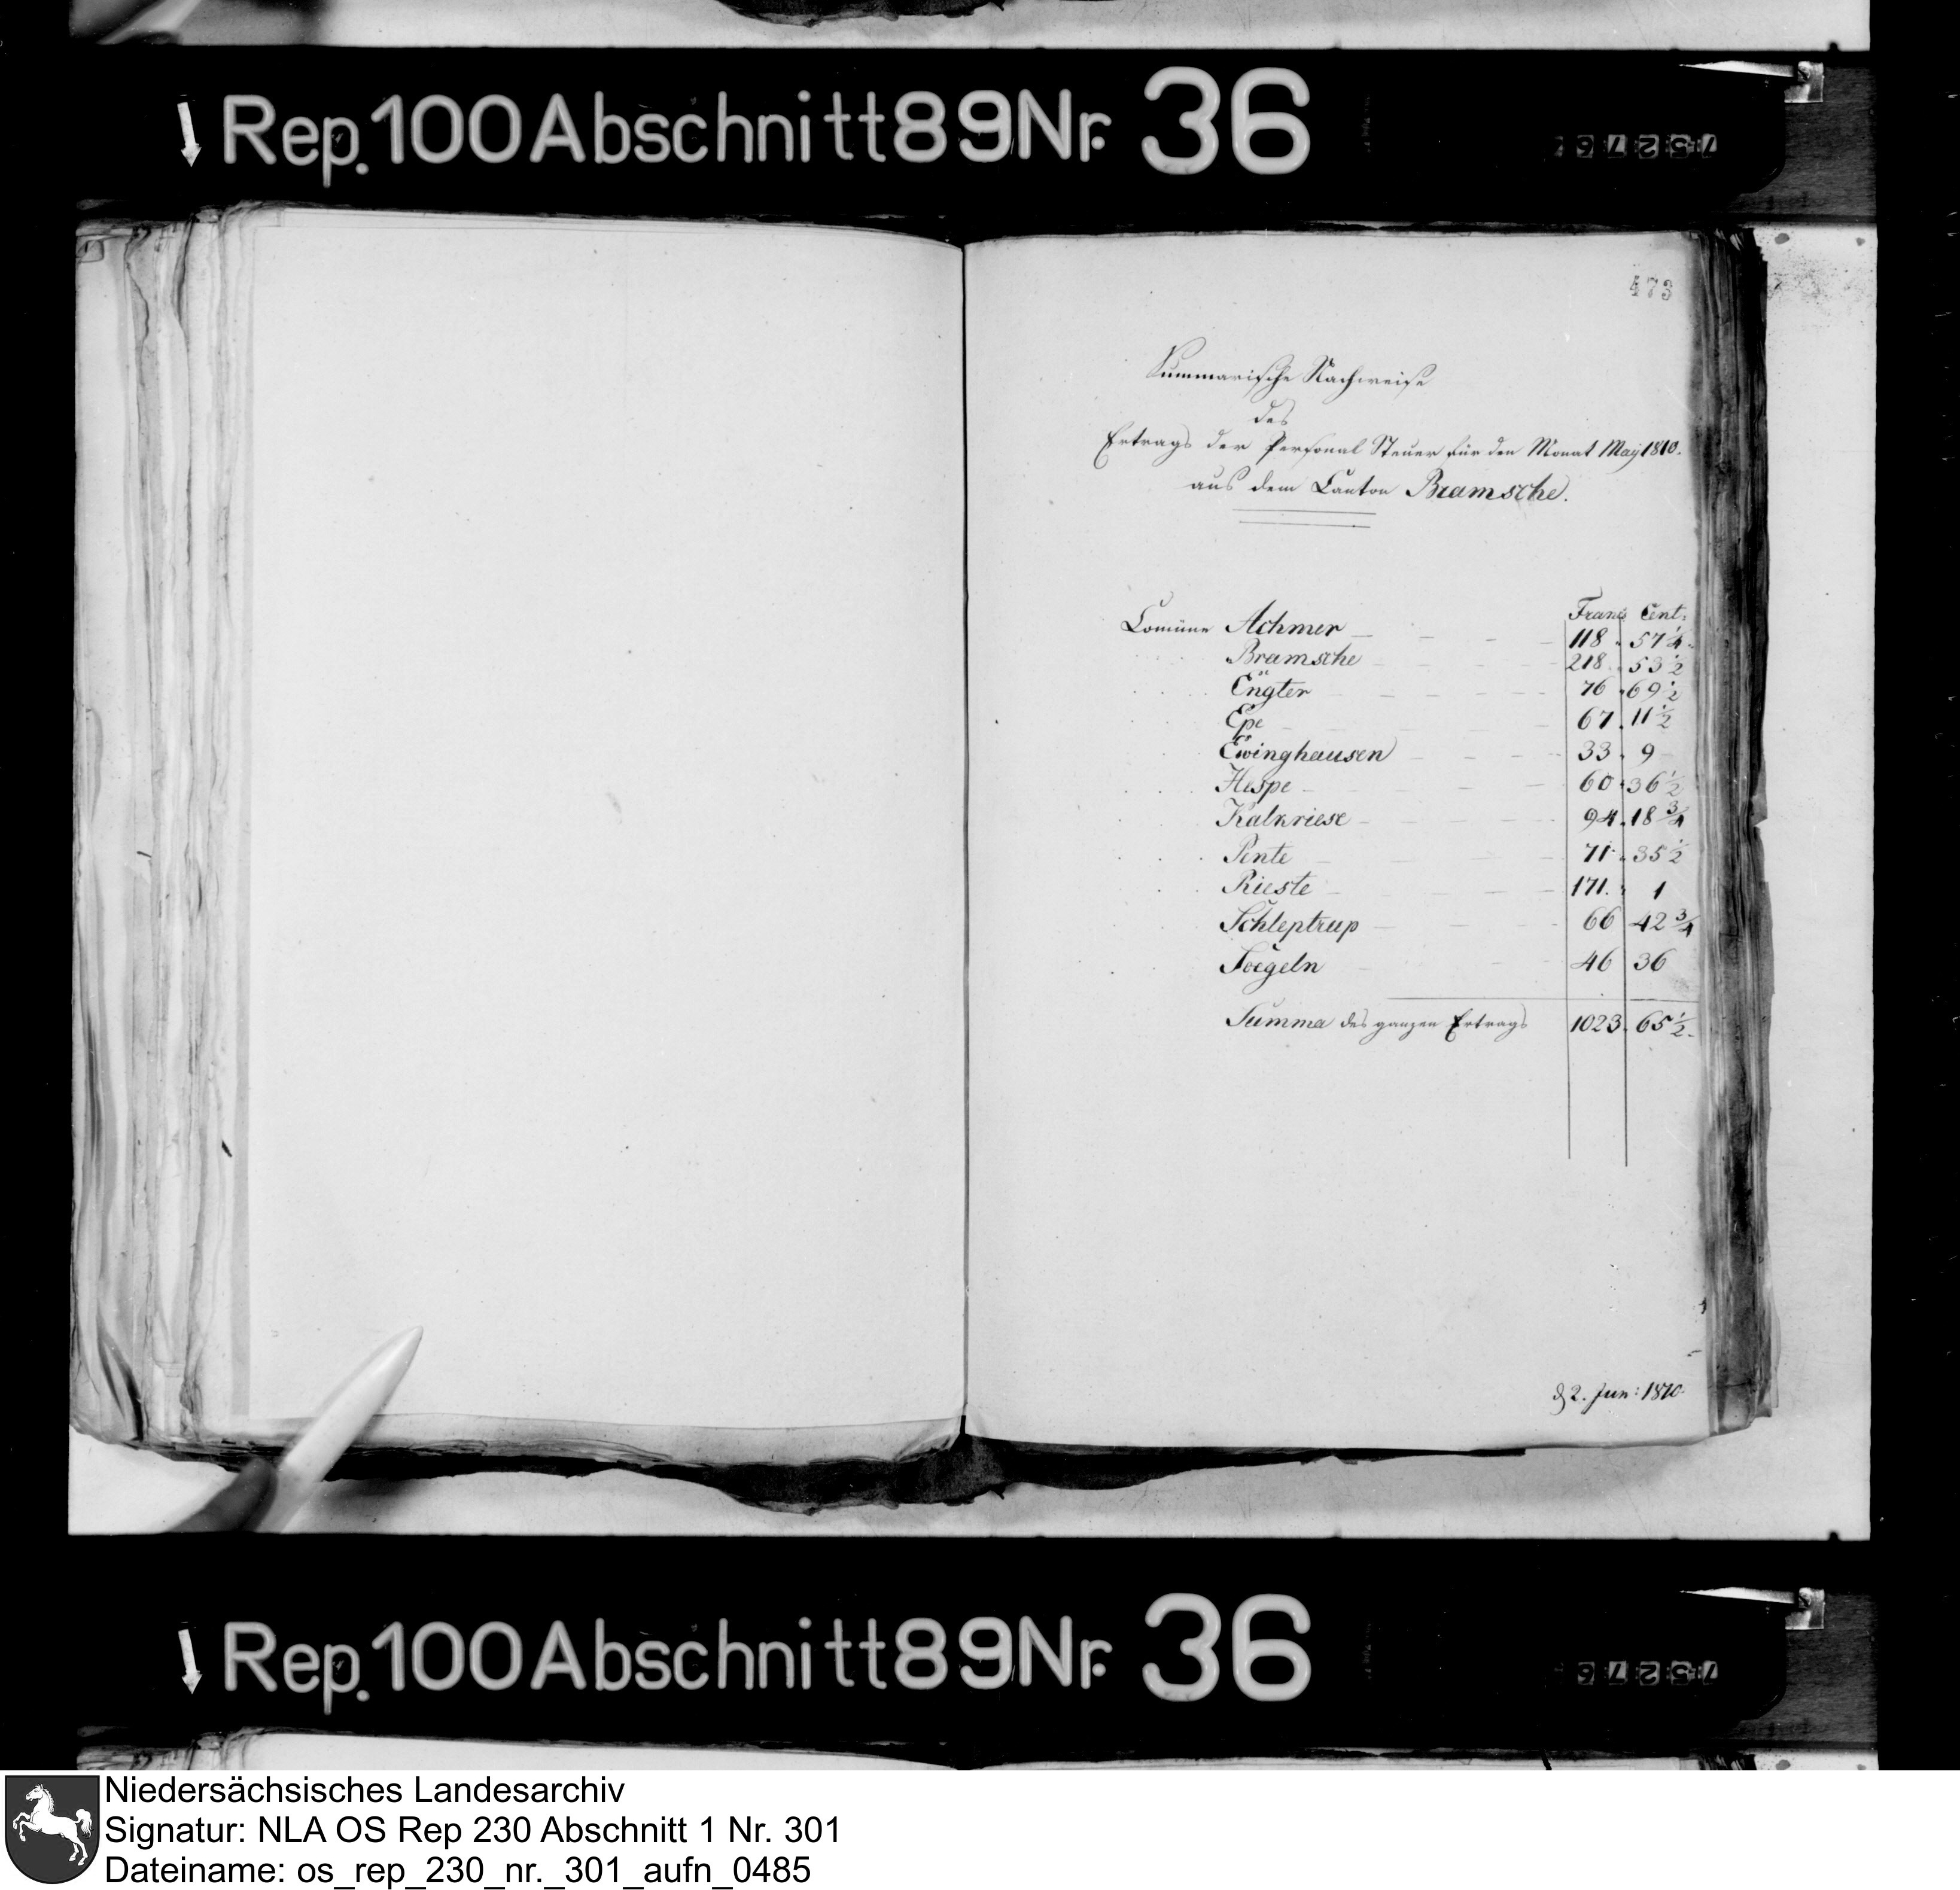 Rep.100 Abschnitt 89 Nr. 36
473
Summarische Nachweise
des
Ertrags der Personal Steuer für den Monat May 1810.
aus dem Canton Bramsche.
Francs Cent:
Comüne Achmer 118 57 1/4
Bramsche 218 53 1/2
Engter 76 69 1/2
Epe 67 11 1/2
Ewinghausen 33 9
Hespe 60 36 1/2
Kalkriese 94 18 3/4
Pente 71 35 1/2
Rieste 171 1
Schleptrup 66 42 3/4
Soegeln 46 36
Summa des ganzen Ertrags 1023 65 1/2
2. Jun: 1810
Rep.100 Abschnitt 89 Nr. 36
Niedersächsisches Landesarchiv
Signatur: NLA OS Rep 230 Abschnitt 1 Nr. 301
Dateiname: os_rep_230_nr._301_aufn_0485